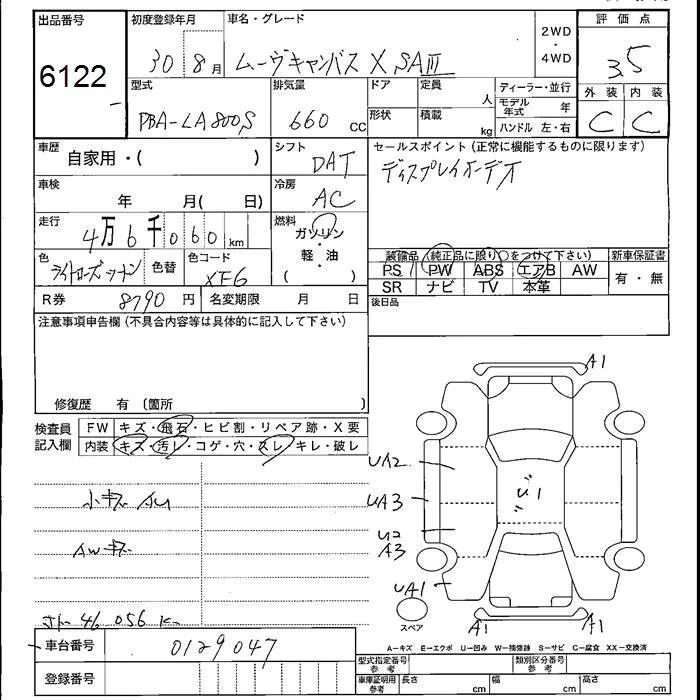 出品番号
6122
初度登録年月
30 8月
車名・グレード
ムーヴキャンバス X SAⅢ
2WD
・
4WD
評価点
3.5
外装 内装
C C
型式
PBA-LA800S
排気量
660 cc
ドア
形状
定員
人
積載
kg
ディーラー・並行
モデル年式 年
ハンドル 左・右
車歴
自家用・( )
シフト
DAT
セールスポイント (正常に機能するものに限ります)
ディスプレイオーデオ
車検
年 月( 日)
冷房
AC
走行
4万6千060km
燃料
ガソリン
・
軽・油
( )
色
色替
色コード
XF6
装備品 (純正品に限り○をつけて下さい)
PS PW ABS エアB AW
SR ナビ TV 本革
新車保証書
有・無
R券
8790 円
名変期限 月 日
後日品
注意事項申告欄 (不具合内容等は具体的に記入して下さい)
修復歴 有 (箇所 )
検査員
記入欄
FW キズ・飛石・ヒビ割・リペア跡・X要
内装 キズ・汚レ・コゲ・穴・スレ・キレ・破レ
小キズ AU
AWキズ
46,056 K
A1
UA2
UA3
U1
U2
A3
UA1
A1
A1
スペア
A－キズ E－エクボ U－凹み W－補修跡 S－サビ C－腐食 XX－交換済
車台番号
0129047
登録番号
型式指定番号
参考
類別区分番号
参考
車庫証明用
参考
長さ cm
幅 cm
高さ cm